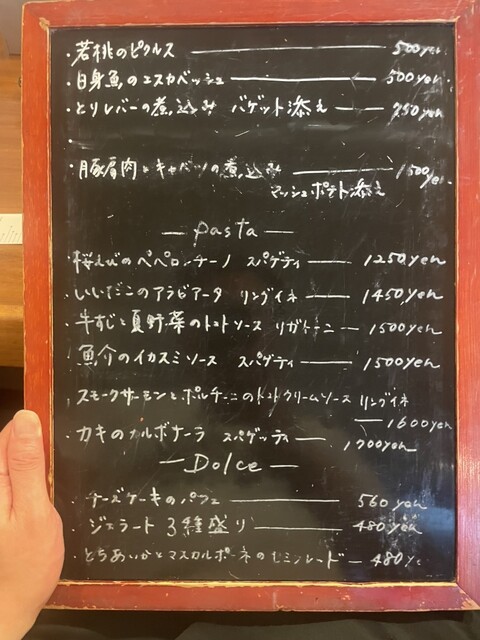 ・若桃のピクルス ― 500yen
・白身魚のエスカベッシュ ― 500yen
・とりレバーの煮込み バゲット添え ― 750yen
・
・豚肩肉とキャベツの煮込み ― 1500yen
マッシュポテト添え
― pasta ―
・桜えびのペペロンチーノ スパゲティ ― 1250yen
・いいだこのアラビアータ リングイネ ― 1450yen
・牛すじと夏野菜のトマトソース リガトーニ ― 1500yen
・魚介のイカスミソース スパゲティ ― 1500yen
・スモークサーモンとポルチーニのトマトクリームソース リングイネ
― 1600yen
・カキのカルボナーラ スパゲッティ ― 1700yen
― Dolce ―
・チーズケーキのパフェ ― 560yen
・ジェラート 3種盛り ― 480yen
・とちあいかとマスカルポーネのセミフレッド ― 480ye